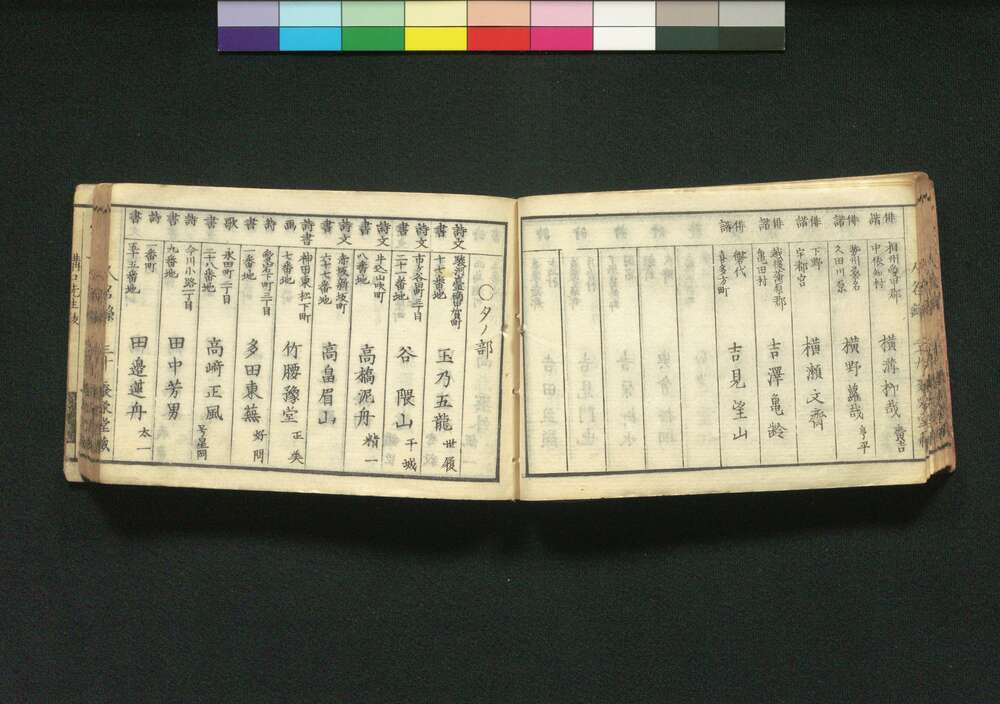 俳諧 相州愛甲郡中依知村 横溝柳哉
俳諧 勢州桑名久田川原 横野蘿哉 亨平
俳諧 下野宇都宮 横瀬文齋
俳諧 越後蒲原郡亀田村 吉澤亀齢
俳諧 喜多方町 吉見望山
○タノ部
詩文書 駿河臺南甲賀町十六番地 玉乃五龍 世履
詩文書 市ヶ谷田町三丁目二十一番地 谷隈山 干城
書 牛込山吹町八番地 高橋泥舟 精一
詩文 赤坂新坂町六十七番地 高畠眉山
詩書画 神田東松下町七番地 竹腰豫堂 正美
詩書 愛宕下町三丁目一番地 多田東蕪 好問
歌書 永田町二丁目二十八番地 高崎正風 号星岡
詩書 今川小路二丁目九番地 田中芳男
詩書 一番町五十五番地 田邉蓮舟 太一